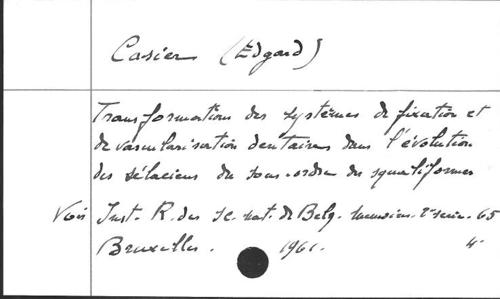 Casier (Edgard)
Transformations des systèmes de fixation et
de vascularisation dentaires dans l'évolution
des sélaciens du sous-ordre des squaliformes
Voir Inst. R. des Sc. nat. de Belg. Mémoires. 2e série. 65
Bruxelles. 1961. 4°